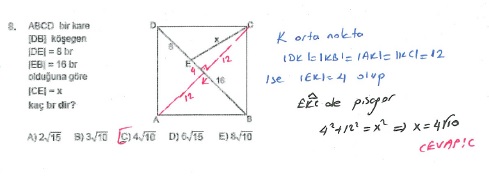 8. ABCD bir kare
[DB] köşegen
|DE| = 8 br
|EB| = 16 br
olduğuna göre
|CE| = x
kaç br dir?
D
C
8
x
E
4
12
12
K
16
12
A
B
A) 2√15 B) 3√10 C) 4√10 D) 6√15 E) 8√10
K orta nokta
|DK|=|KB|=|AK|=|KC|=12
ise |EK|=4 olup
EKC de pisagor
4²+12²=x² ⇒ x=4√10
CEVAP:C